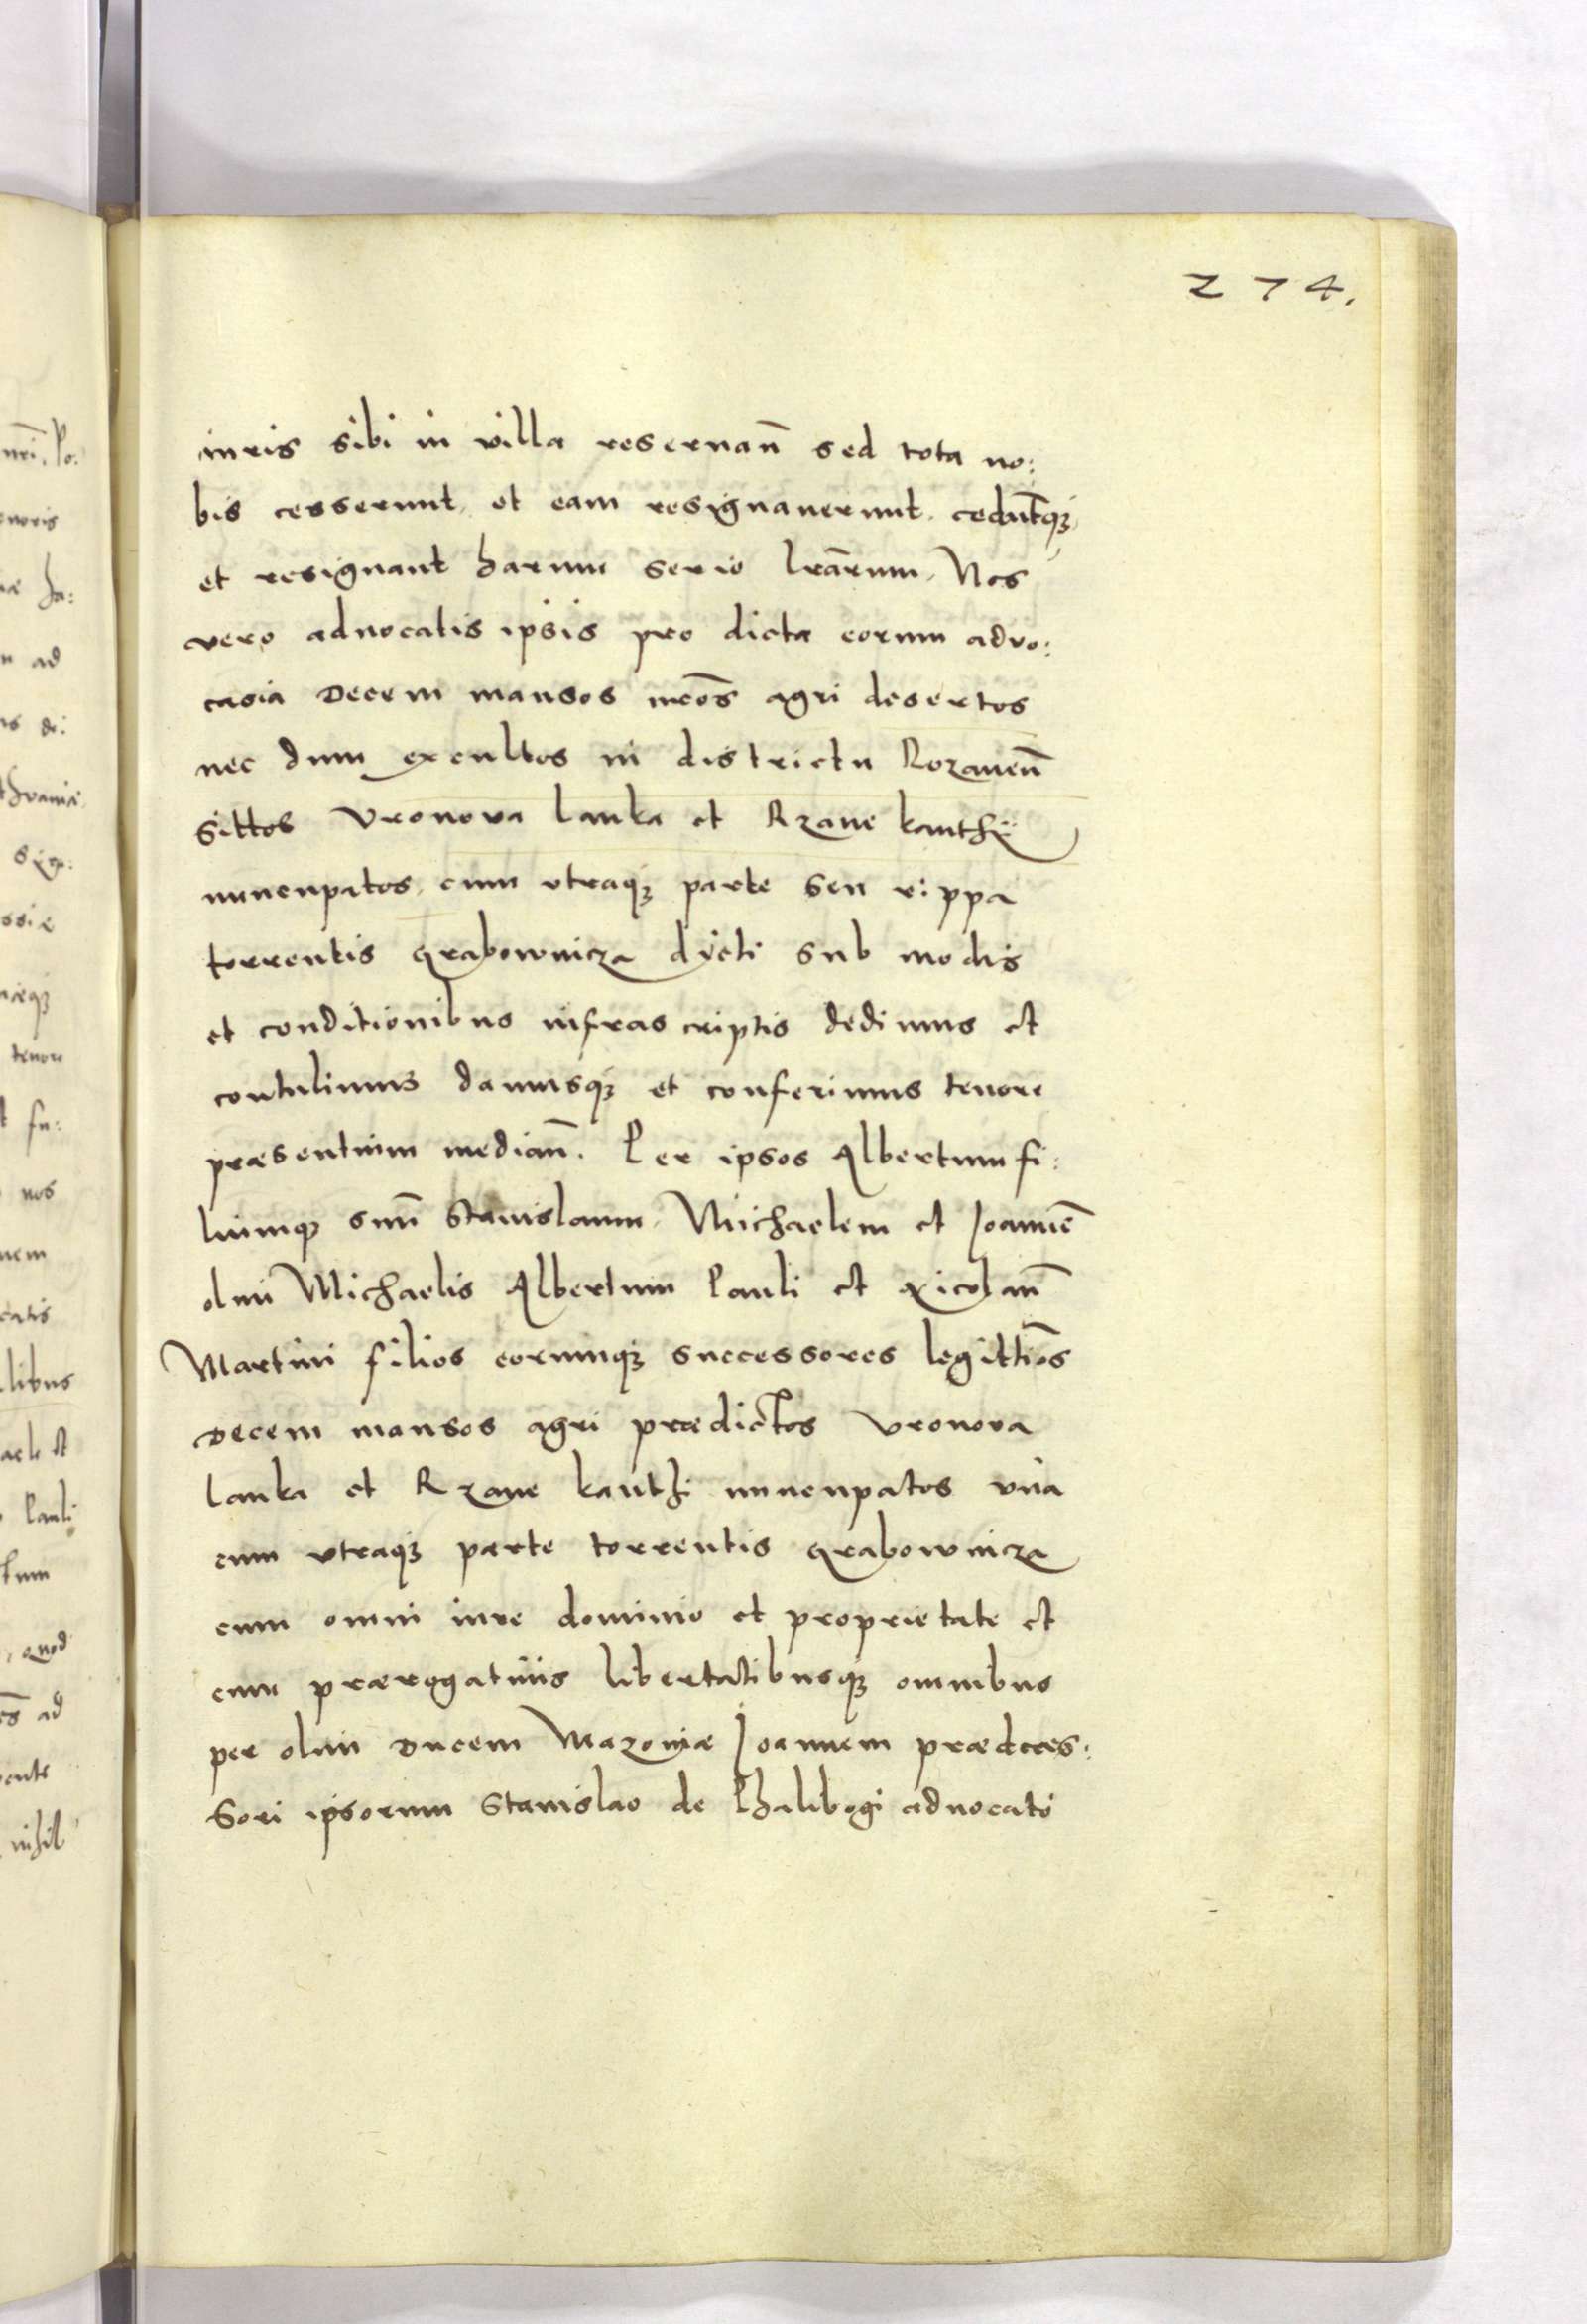 274.
iuris sibi in villa reseruan̄ sed tota no:
bis cesserunt, et eam resignauerunt, cedūtq3
et resignant harum serio lr̄arum, Nos
vero aduocatis ipsis pro dicta eorum advo:
casia decem mansos nr̄os agri desertos
nec dum excultos in districtu Rozanen̄
sittos Vronova lanka et Rzane kanthÿ
nuncupatos, cum vtraq3 parte seu rippa
torrentis Grabownicza dicti sub modis
et conditionibus infrascriptis dedimus et
contulimus damusq3 et conferimus tenore
præsentium median̄. Per ipsos Albertum fi:
liumq3 suū Stanislaum, Michaelem et Joannē
olim Michaelis Albertum Pauli et Nicolaū
Martini filios eorumq3 successores legittiōs
decem mansos agri prædictos Vronova
lanka et Rzane kanthi nuncupatos vna
cum vtraq3 parte torrentis Grabownicza
cum omni iure dominio et proprietate et
cum prærogatiuis libertatibusq3 omnibus
per olim ducem Mazouiæ Joannem prædeces:
sori ipsorum Stanislao de Chalibogi aduocato